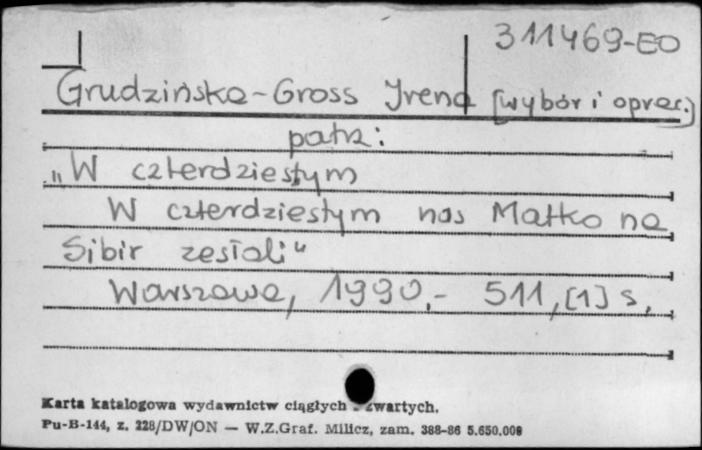 311469-EO
Grudzińska-Gross Irena [wybór i oprac.]
patrz:
„W czterdziestym
W czterdziestym nas Matko na
Sibir zesłali"
Warszawa, 1990.- 511,[1] s.
Karta katalogowa wydawnictw ciągłych zwartych.
Pu-B-144, z. 228/DW/ON — W.Z.Graf. Milicz, zam. 388-86 5.650.000